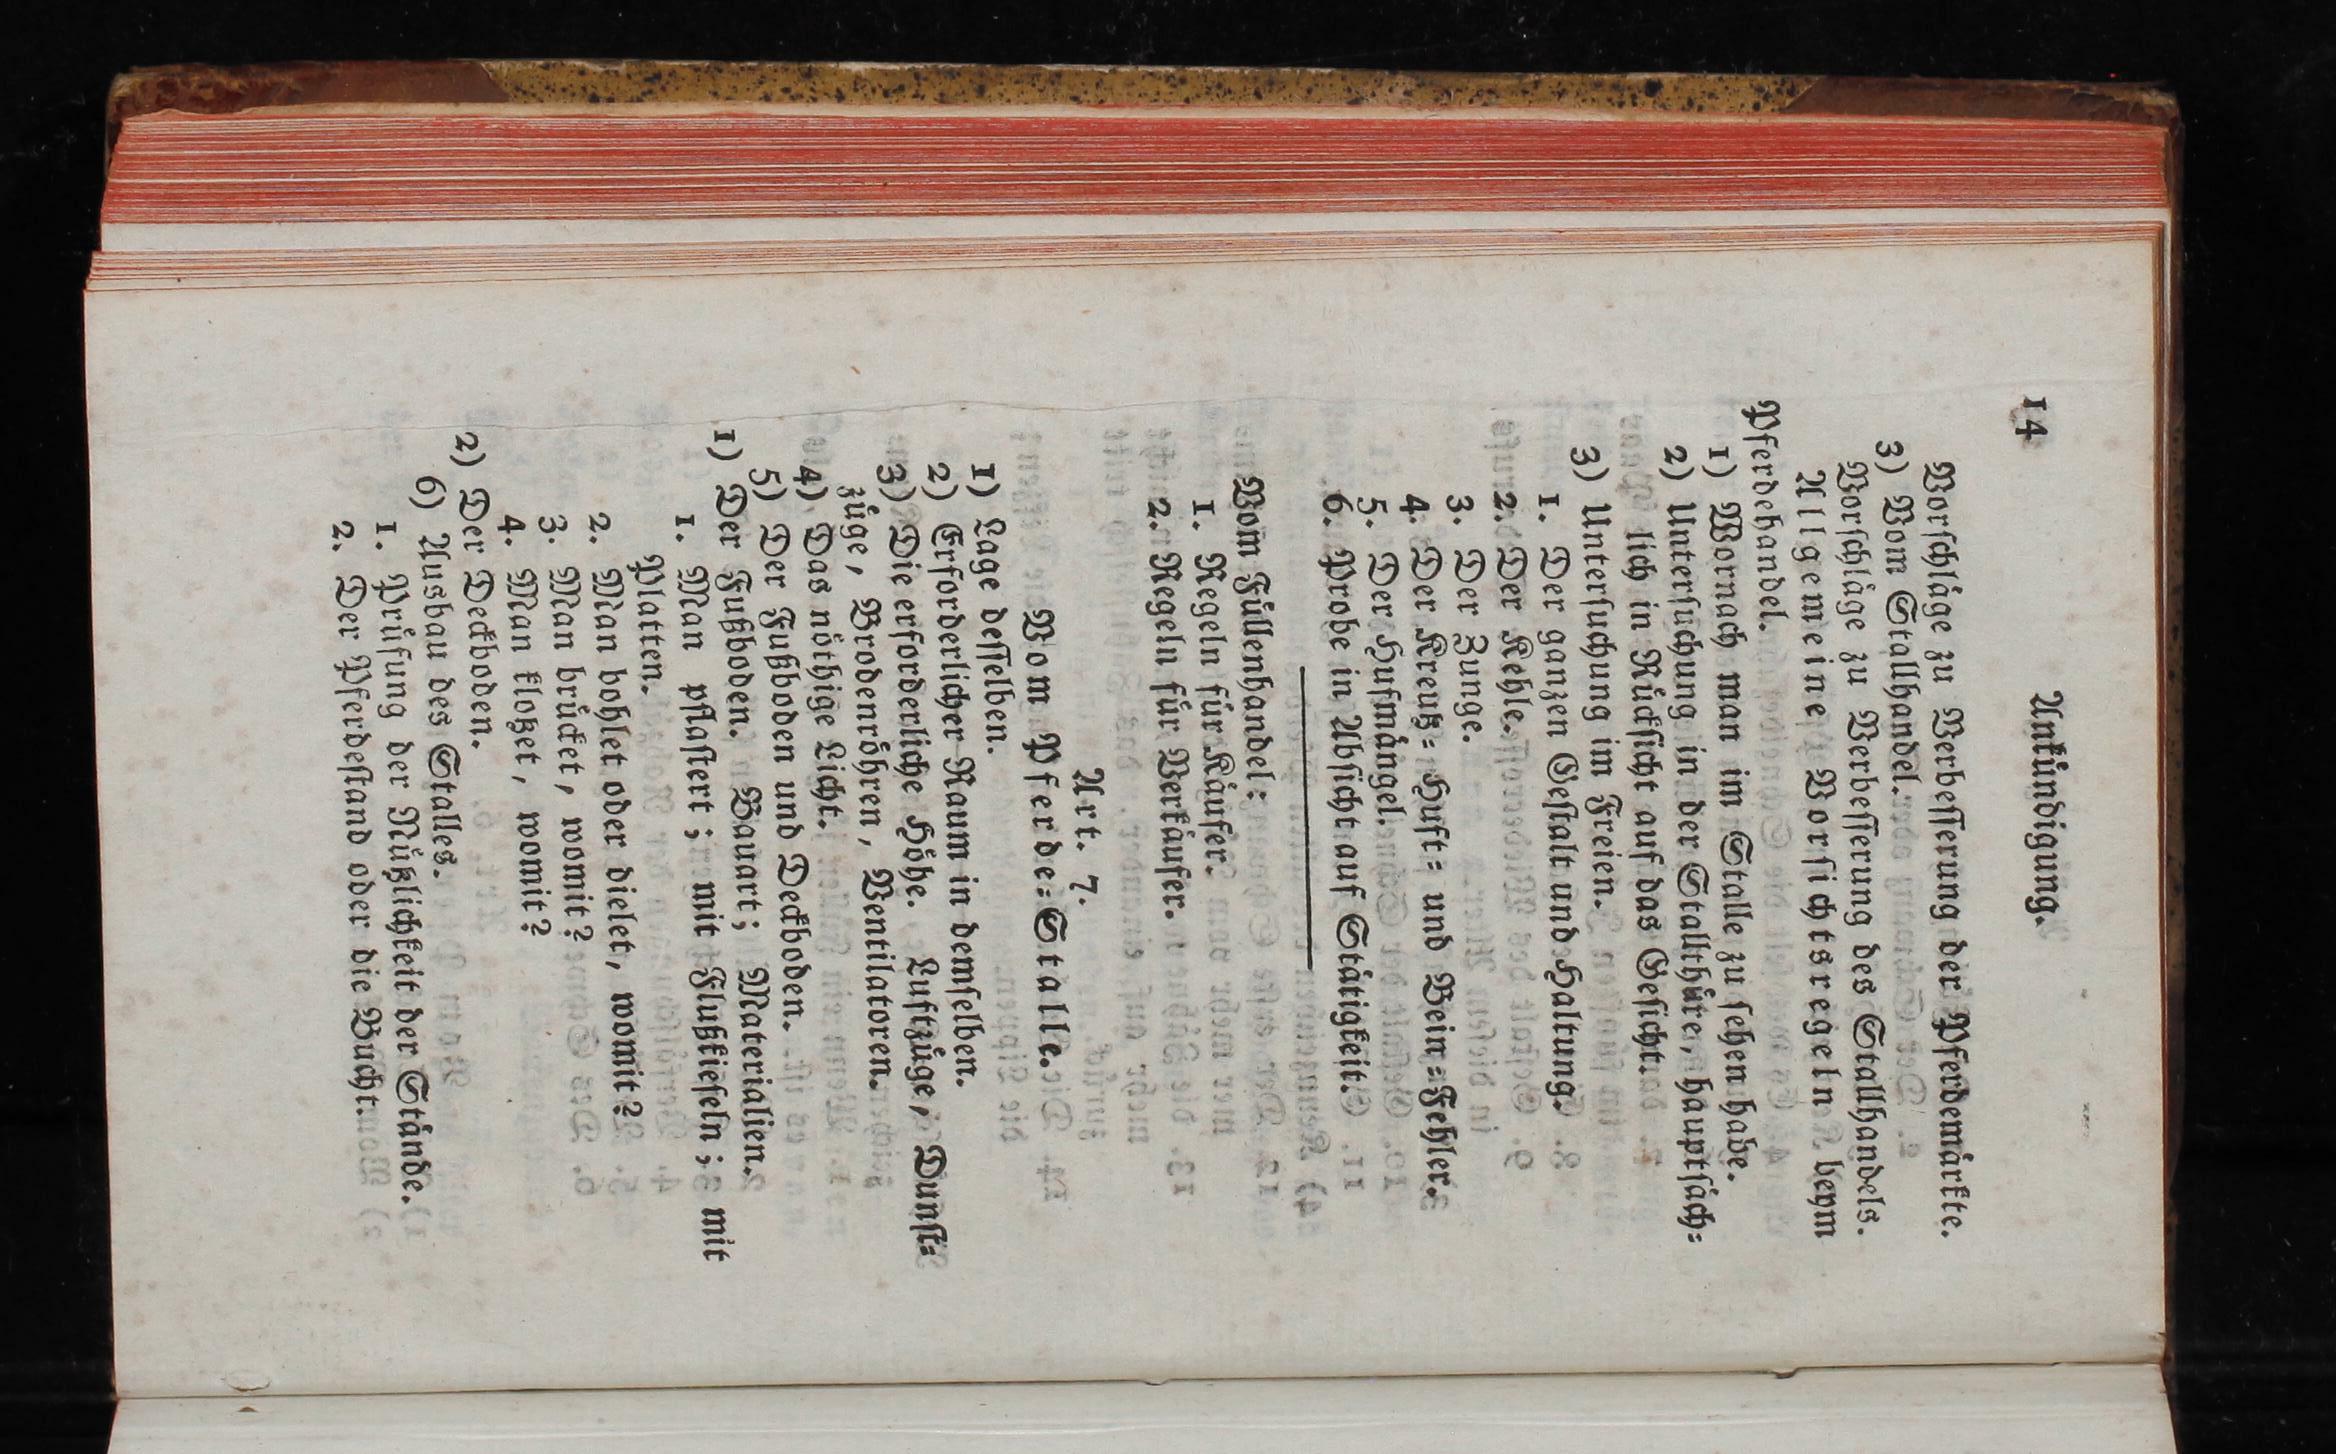 14 Ankündigung.
Vorschläge zu Verbesserung der Pferdemärkte.
3) Vom Stallhandel.
Vorschläge zu Verbesserung des Stallhandels.
Allgemeine Vorsichtsregeln beym
Pferdehandel.
1) Wornach man im Stalle zu sehen habe.
2) Untersuchung in der Stallthüre, hauptsäch=
lich in Rücksicht auf das Gesicht.
3) Untersuchung im Freien.
1. Der ganzen Gestalt und Haltung.
2. Der Kehle.
3. Der Zunge.
4. Der Kreutz= Huft= und Bein=Fehler.
5. Der Hufmängel.
6. Probe in Absicht auf Stätigkeit.
Vom Füllenhandel:
1. Regeln für Käufer.
2. Regeln für Verkäufer.
Art. 7.
Vom Pferde=Stalle.
1) Lage desselben.
2) Erforderlicher Raum in demselben.
3) Die erforderliche Höhe. Luftzüge, Dunst=
züge, Brodenröhren, Ventilatoren.
4) Das nöthige Licht.
5) Der Fußboden und Deckboden.
1) Der Fußboden. Bauart; Materialien.
1. Man pflastert; mit Flußkieseln; mit
Platten.
2. Man bohlet oder dielet, womit?
3. Man brücket, womit?
4. Man klotzet, womit?
2) Der Deckboden.
6) Ausbau des Stalles.
1. Prüfung der Nützlichkeit der Stände.
2. Der Pferdestand oder die Bucht.